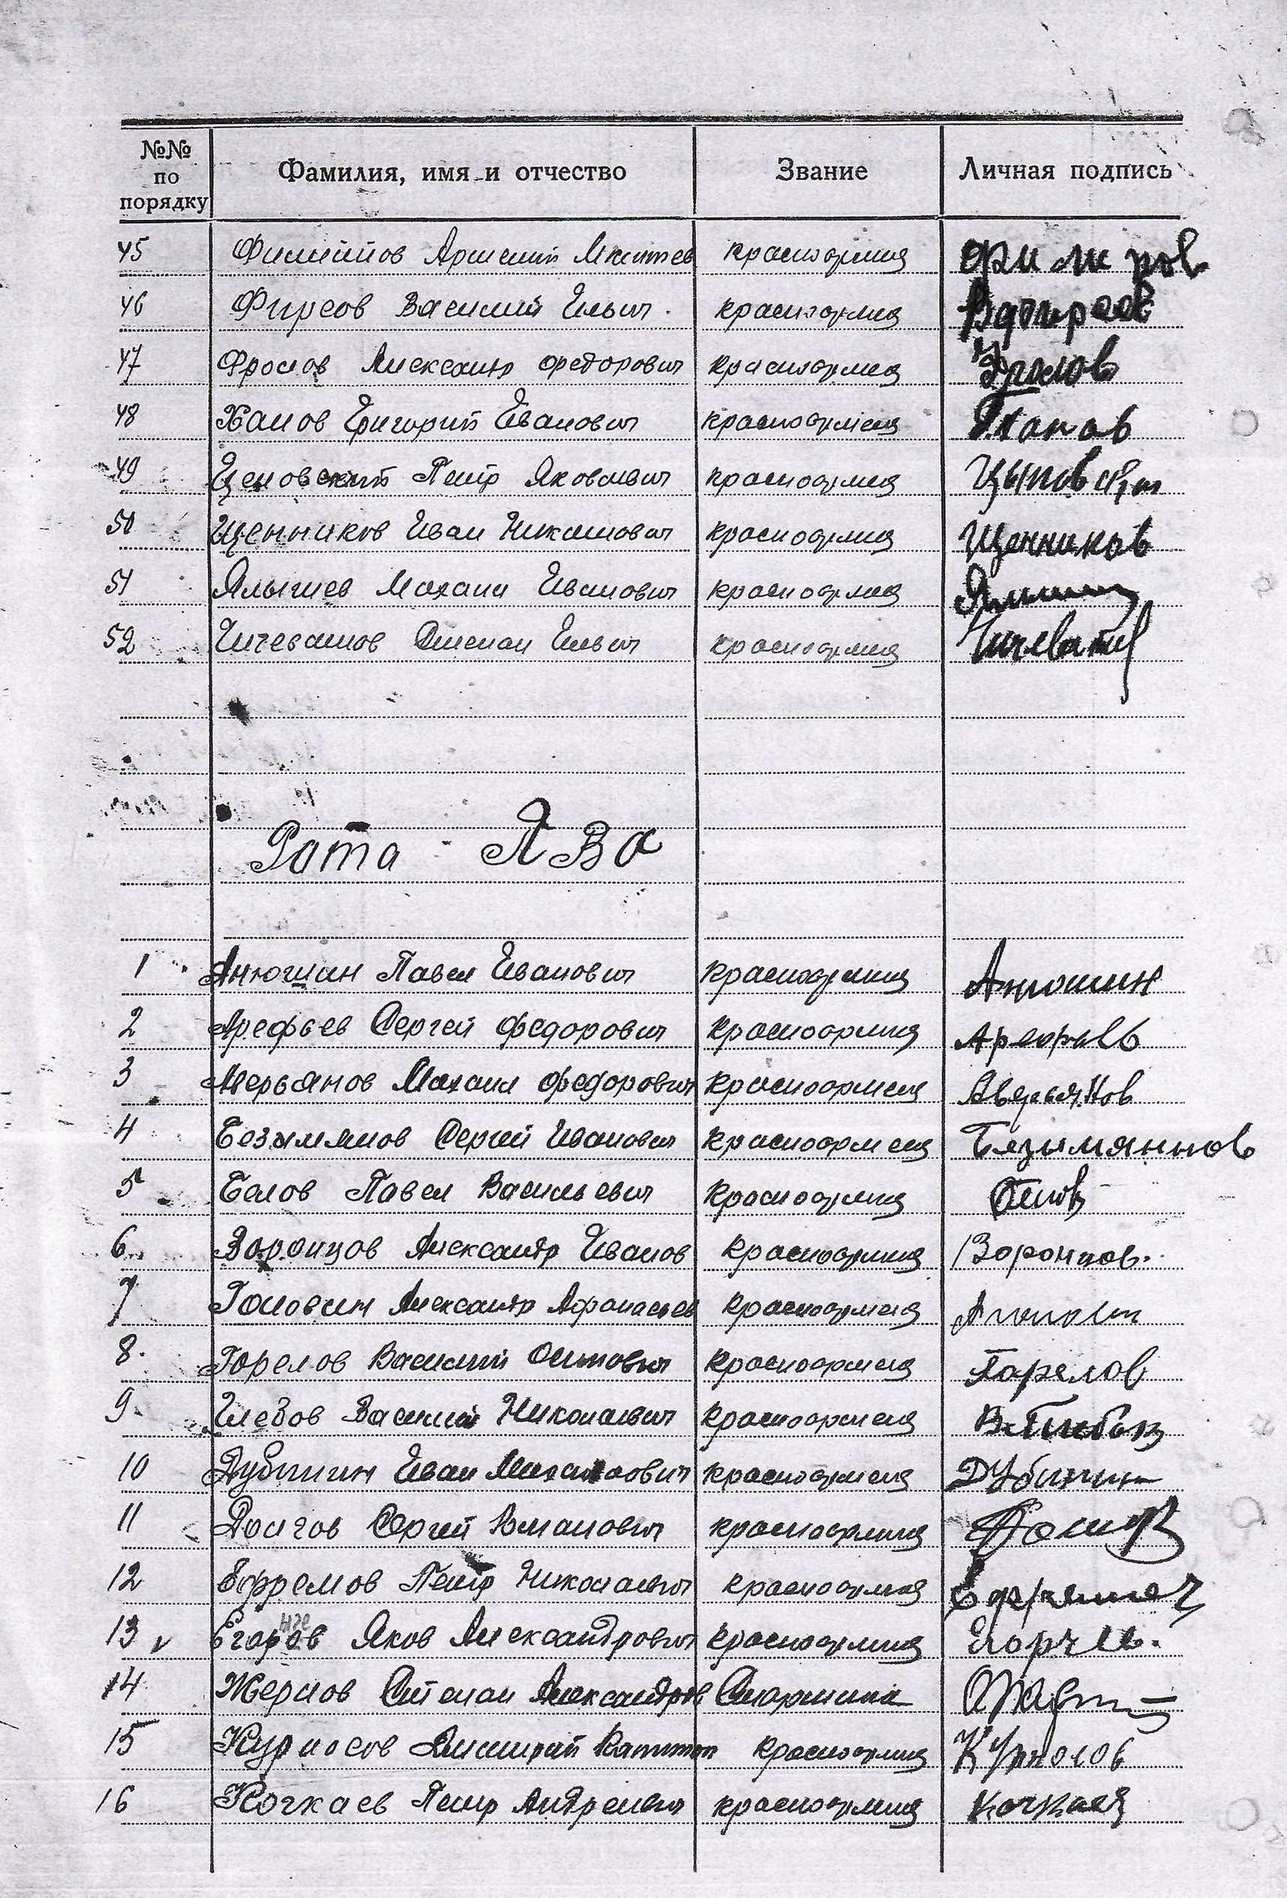 №№ по порядку Фамилия, имя и отчество Звание Личная подпись
45 Филиппов Арсений Мкитиев красноармеец Филипов
46 Фирсов Василий Ильич красноармеец
47 Фролов Александр Федорович красноармеец Фролов
48 Ханов Григорий Иванович красноармеец Г.Ханов
49 Петр Яковлевич красноармеец
50 Щенников Иван Николаевич красноармеец Щенников
51 Ялышев Михаил Иванович красноармеец
52 Чичеватов Степан Ильич красноармеец Чичеватов
Рота - ЯВО
1 Анюшин Павел Иванович красноармеец Анюшин
2 Арефьев Сергей Федорович красноармеец Арефьев
3 Аверьянов Михаил Федорович красноармеец Аверьянов
4 Безымянов Сергей Иванович красноармеец
5 Белов Павел Васильевич красноармеец Белов
6 Воронцов Александр Иванов красноармеец Воронцов.
7 Головин Александр Афанасьев красноармеец
8. Горелов Василий Осипович красноармеец Горелов
9 Глебов Василий Николаевич красноармеец
10 Дубинин Иван Михайлович красноармеец Дубинин
11 Долгов Сергей Романович красноармеец
12 Ефремов Петр Николаевич красноармеец
13 v Егоров Яков Александрович красноармеец
14 Жерлов Степан Александров Старшина
15 Курносов Дмитрий Капитон красноармеец Курносов
16 Кочкаев Петр Андреевич красноармеец Кочкаев